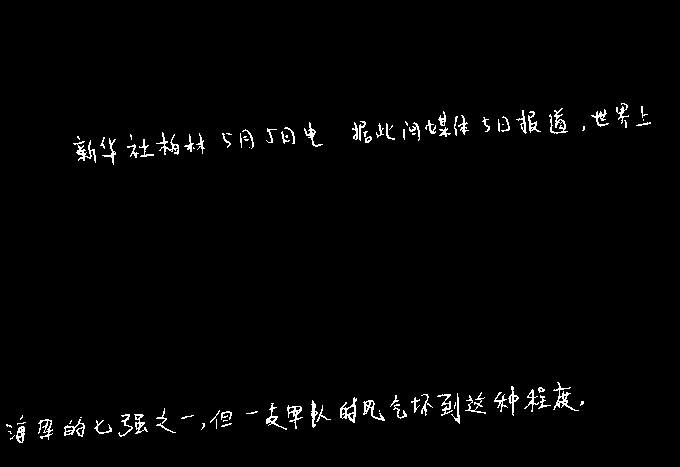 新华社柏林5月5日电 据此间媒体5日报道,世界上
海军的七强之一,但一支军队的风气坏到这种程度.